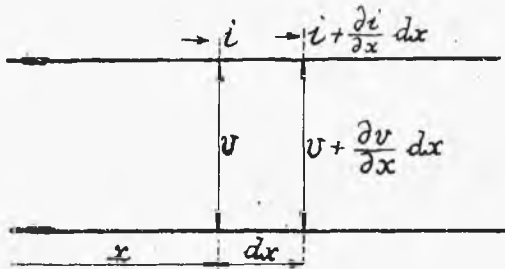 i i + ∂i/∂x dx
v v + ∂v/∂x dx
x dx